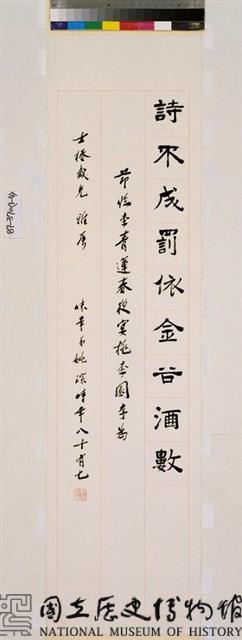 詩不成罰依金谷酒數
節臨李青蓮春夜宴桃李園序為
士棻敬先 雅屬
味辛弟姚琮時年八十有七
國立歷史博物館
NATIONAL MUSEUM OF HISTORY